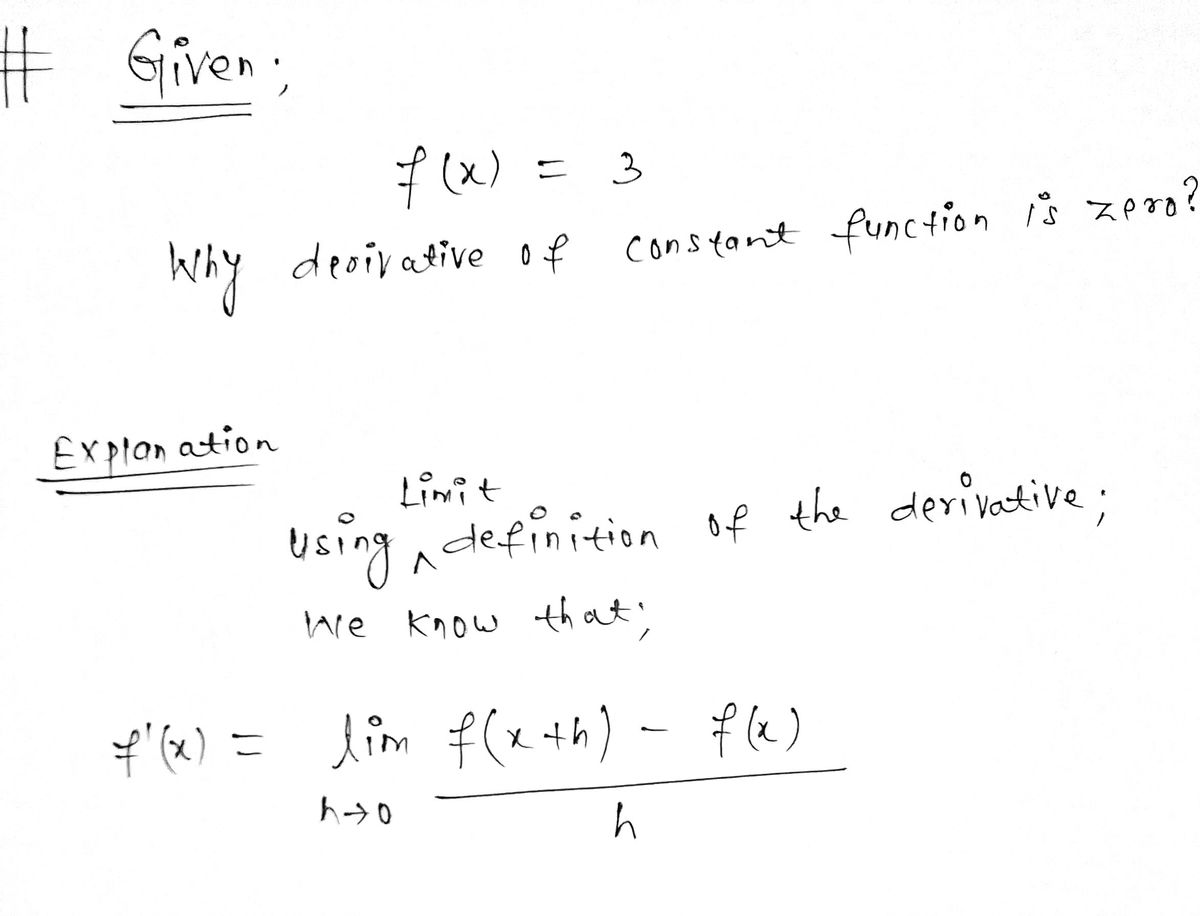 # Given;
f(x) = 3
Why derivative of constant function is zero?
Explanation
Limit
Using ^ definition of the derivative;
We know that;
f'(x) = lim f(x+h) - f(x)
h→0 h